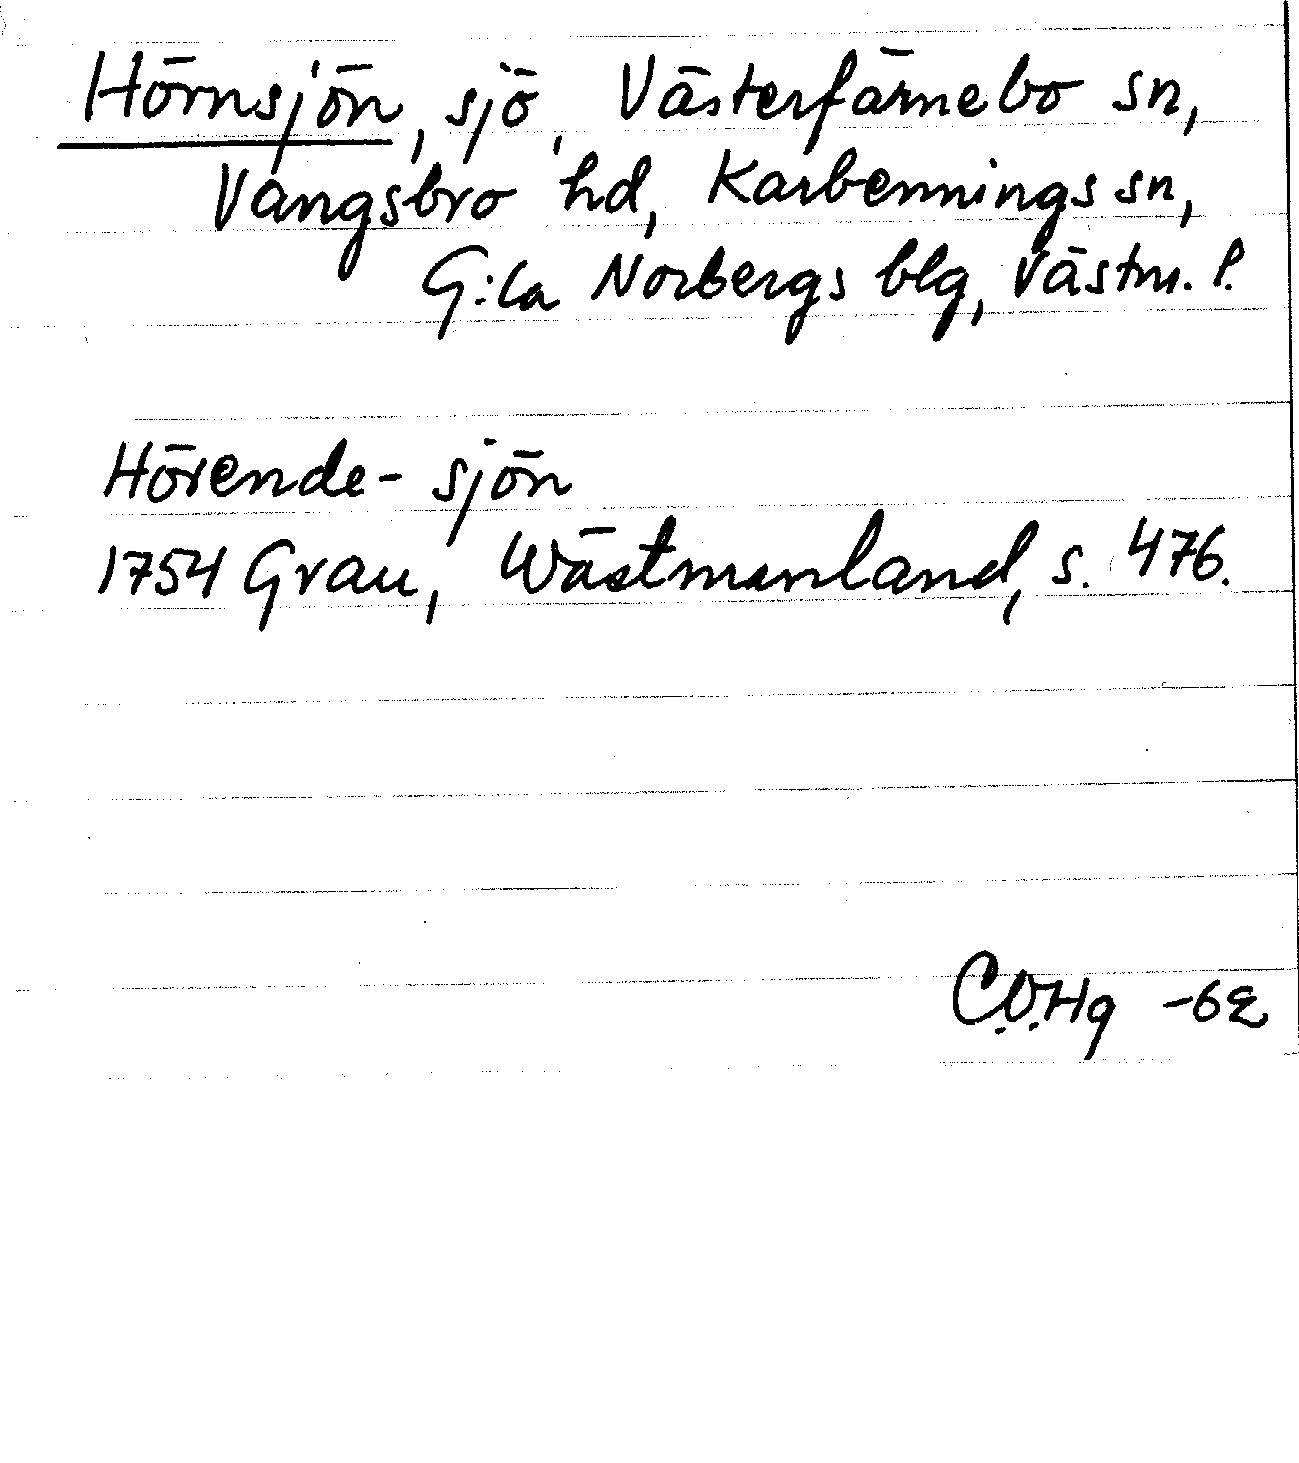 Hörnsjön, sjö, Västerfärnebo sn,
Vangsbro hd, Karbennings sn,
G:la Norbergs blg, Västm. l.
Hörende- sjön
1754 Grau, Wästmanland, s. 476.
C.O.Hg -62